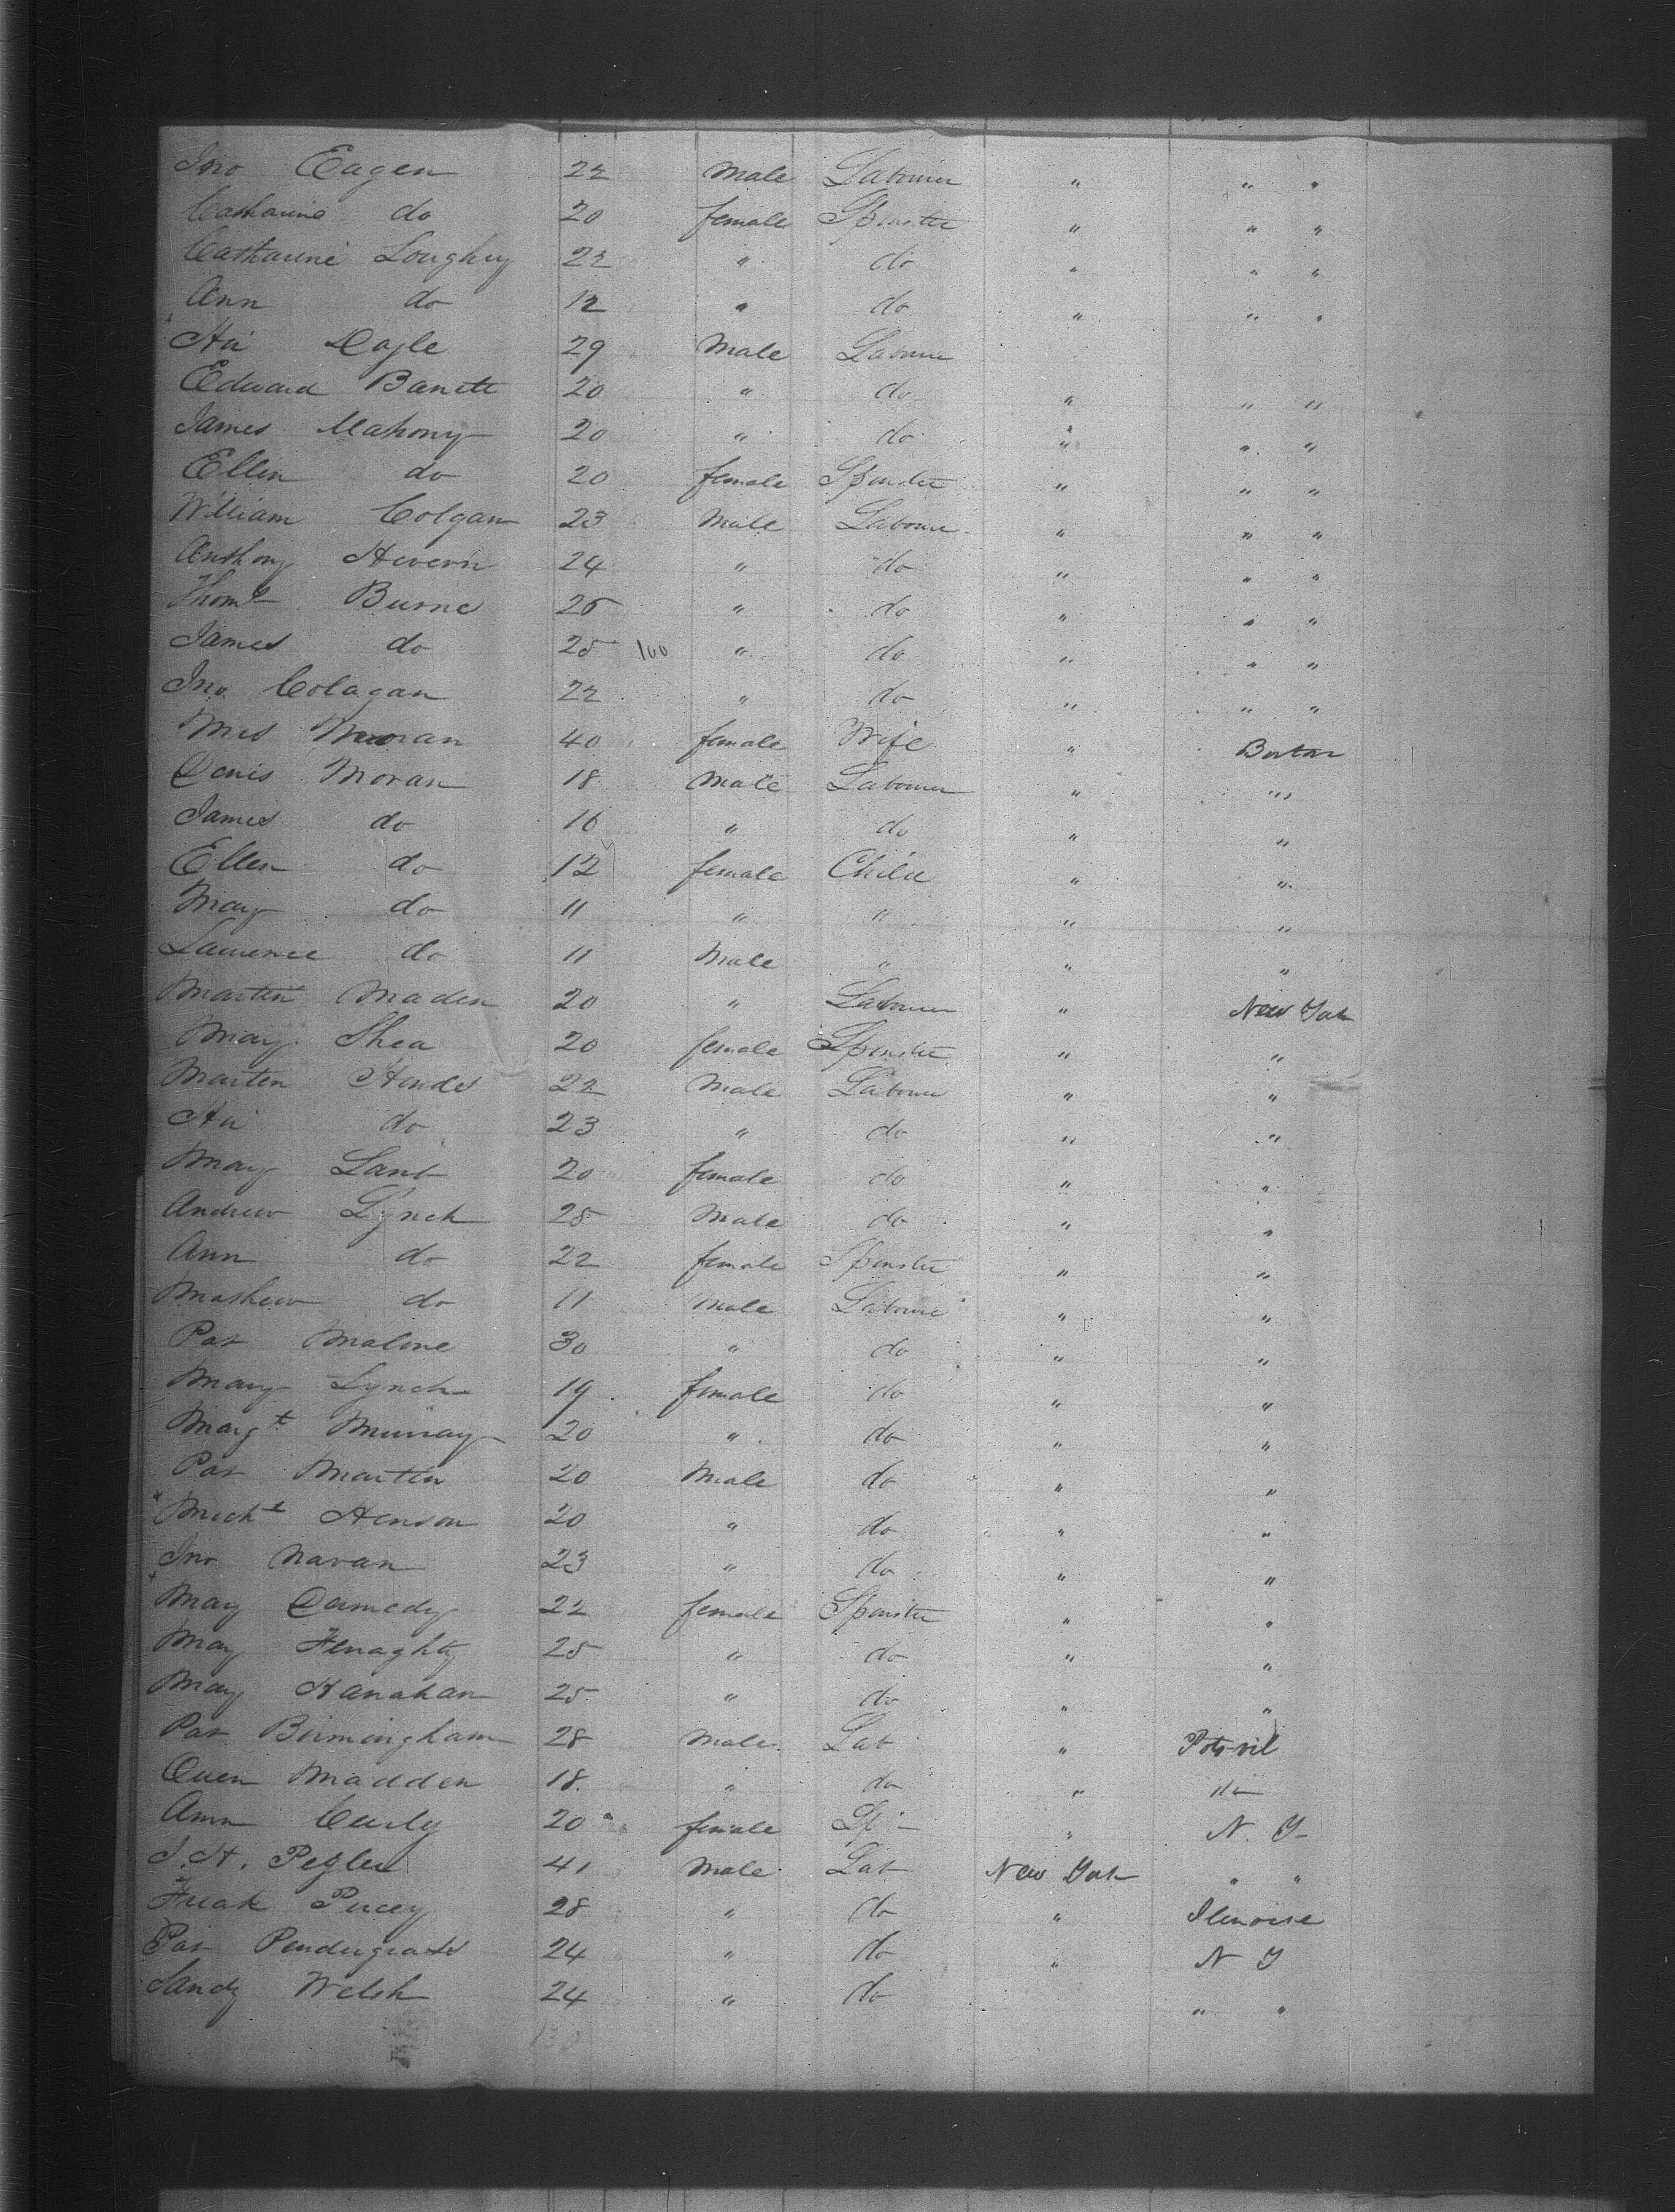 Jno Eagen 22 Male Labourer " " "
Catharine do 20 female Spinster " " "
Catharine Loughry 22 " do " " "
Ann do 12 " do " " "
Dogle 29 Male Labourer
Edward Barrett 20 " do " " "
James Mahony 20 " do " " "
Ellen do 20 female Spinster " " "
William Colgan 23 Male Labourer " " "
Anthony Hevern 24 " do " " "
Thoms Burne 26 " do " " "
James do 25 100 " do " " "
Jno Colagan 22 " do " " "
Mrs Moran 40 female Wife " Boston
Denis Moran 18 Male Labourer " "
James do 16 " do " "
Ellen do 12 female Child " "
Mary do 11 " " " "
Laurence do 11 Male " " "
Martin Maden 20 " Labourer " New York
Mary Shea 20 female Spinster " "
Martin Hinds 22 Male Labourer " "
do 23 " do " "
Mary Lant 20 female do " "
Andrew Lynch 25 Male do " "
Ann do 22 female Spinster " "
Mathew do 11 Male Labourer " "
Pat Malone 30 " do " "
Mary Lynch 19 female do " "
Margt Murray 20 " do " "
Pat Martin 20 Male do " "
Michl Henson 20 " do " "
Jno Navan 23 " do " "
Mary 22 female Spinster " "
Mary Fenaghty 25 " do " "
Mary Hanahan 25 " do " "
Pat Birmingham 28 Male Lab " Potsvil
Owen Madden 18 " do " do
Ann Curly 20 female Sp - " N. Y-
J. H. Pegler 41 Male Lab New York " "
Freak Pucey 28 " do " Ilenoise
Pat Pendergrass 24 " do " N Y
Sandy Welsh 24 " do " "